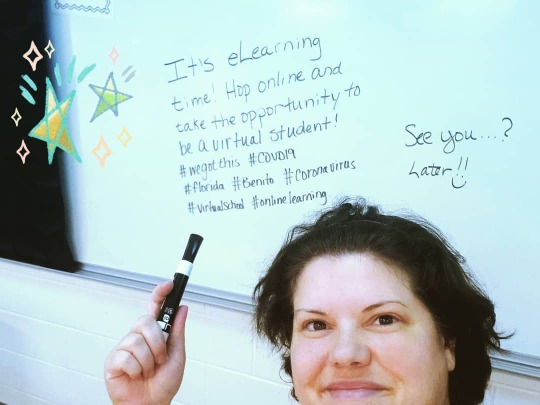 It's eLearning
time! Hop online and
take the opportunity to
be a virtual student!
#wegotthis #COVD19
#florida #Benito #Coronavirus
#virtualschool #onlinelearning
See you...?
Later!!